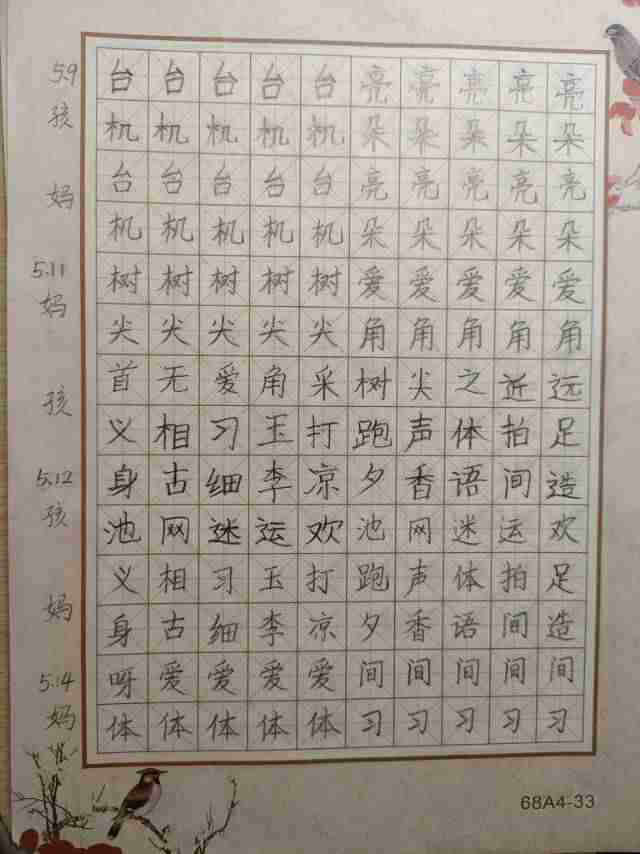 5.9 台台台台台亮亮亮亮亮
孩 机机机机机朵朵朵朵朵
妈 台台台台台亮亮亮亮亮
机机机机机朵朵朵朵朵
5.11 树树树树树爱爱爱爱爱
妈 尖尖尖尖尖角角角角角
首无爱角采树尖之近远
孩 义相习玉打跑声体拍足
5.12 身古细李凉夕香语间造
孩 池网迷运欢池网迷运欢
义相习玉打跑声体拍足
妈 身古细李凉夕香语间造
5.14 呀爱爱爱爱间间间间间
妈 体体体体体习习习习习
68A4-33